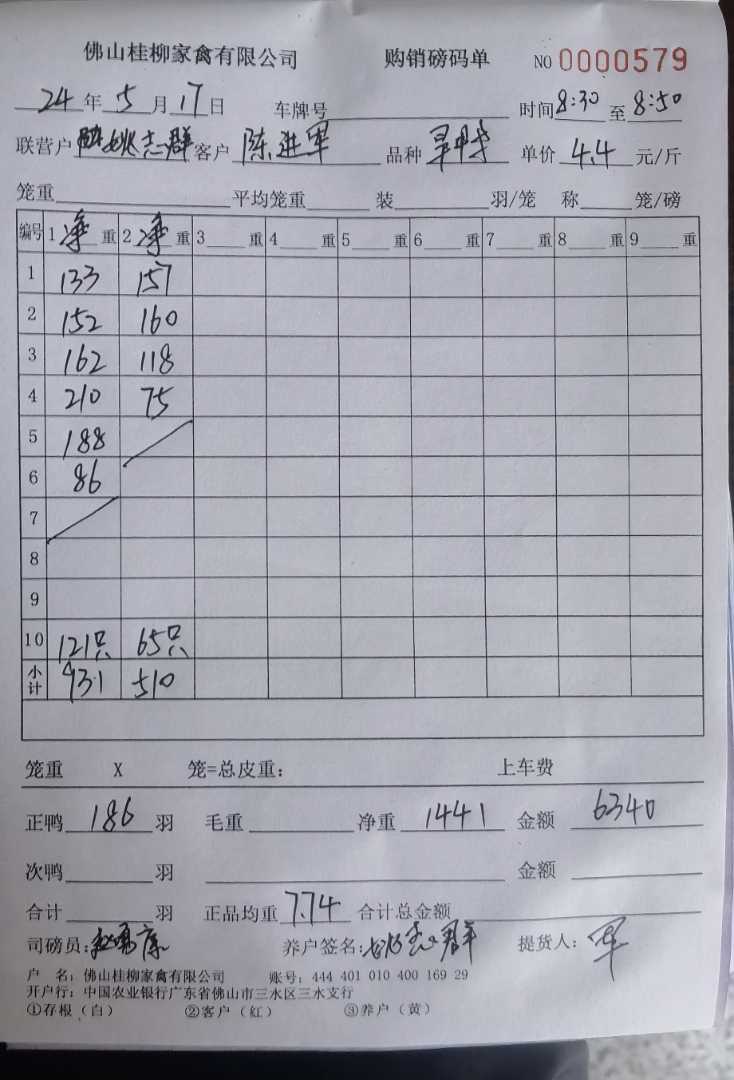 佛山桂柳家禽有限公司 购销磅码单 NO 0000579
24年5月17日 车牌号 时间8:30至8:50
联营户 姚志群 客户 陈进军 品种 单价 4.4 元/斤
笼重 平均笼重 装 羽/笼 称 笼/磅
编号 1净重 2净重 3 重 4 重 5 重 6 重 7 重 8 重 9 重
1 133 157
2 152 160
3 162 118
4 210 75
5 188
6 86
7
8
9
10 121只 65只
小计 931 510
笼重 X 笼=总皮重: 上车费
正鸭 186 羽 毛重 净重 1441 金额 6340
次鸭 羽 金额
合计 羽 正品均重 7.74 合计总金额
司磅员: 养户签名: 姚志群 提货人: 军
户 名: 佛山桂柳家禽有限公司 账号: 444 401 010 400 169 29
开户行: 中国农业银行广东省佛山市三水区三水支行
①存根(白) ②客户(红) ③养户(黄)